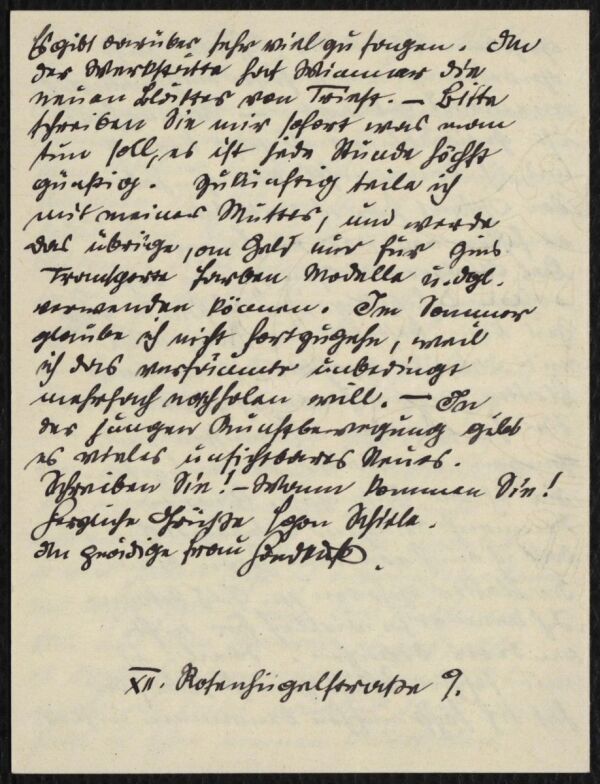 Es gibt darüber sehr viel zu sagen. In
der Werkstätte hat Wimmer die
neuen Blätter von Triest. – Bitte
schreiben Sie mir sofort was man
tun soll, es ist jede Stunde höchst
günstig. Zukünftig teile ich
mit meiner Mutter, und werde
das übrige, an Geld nur für
Transporte Farben Modelle u. dgl.
verwenden können. Im Sommer
glaube ich nicht fortzugehn, weil
ich das versäumte unbedingt
mehrfach nachholen will. – In
der jungen Kunstbewegung gibt
es vieles unsichtbares Neues.
Schreiben Sie! – Wann kommen Sie!
Herzliche Grüße Egon Schiele.
An gnädige Frau Handkuß.
XII. Rosenhügelstraße 9.